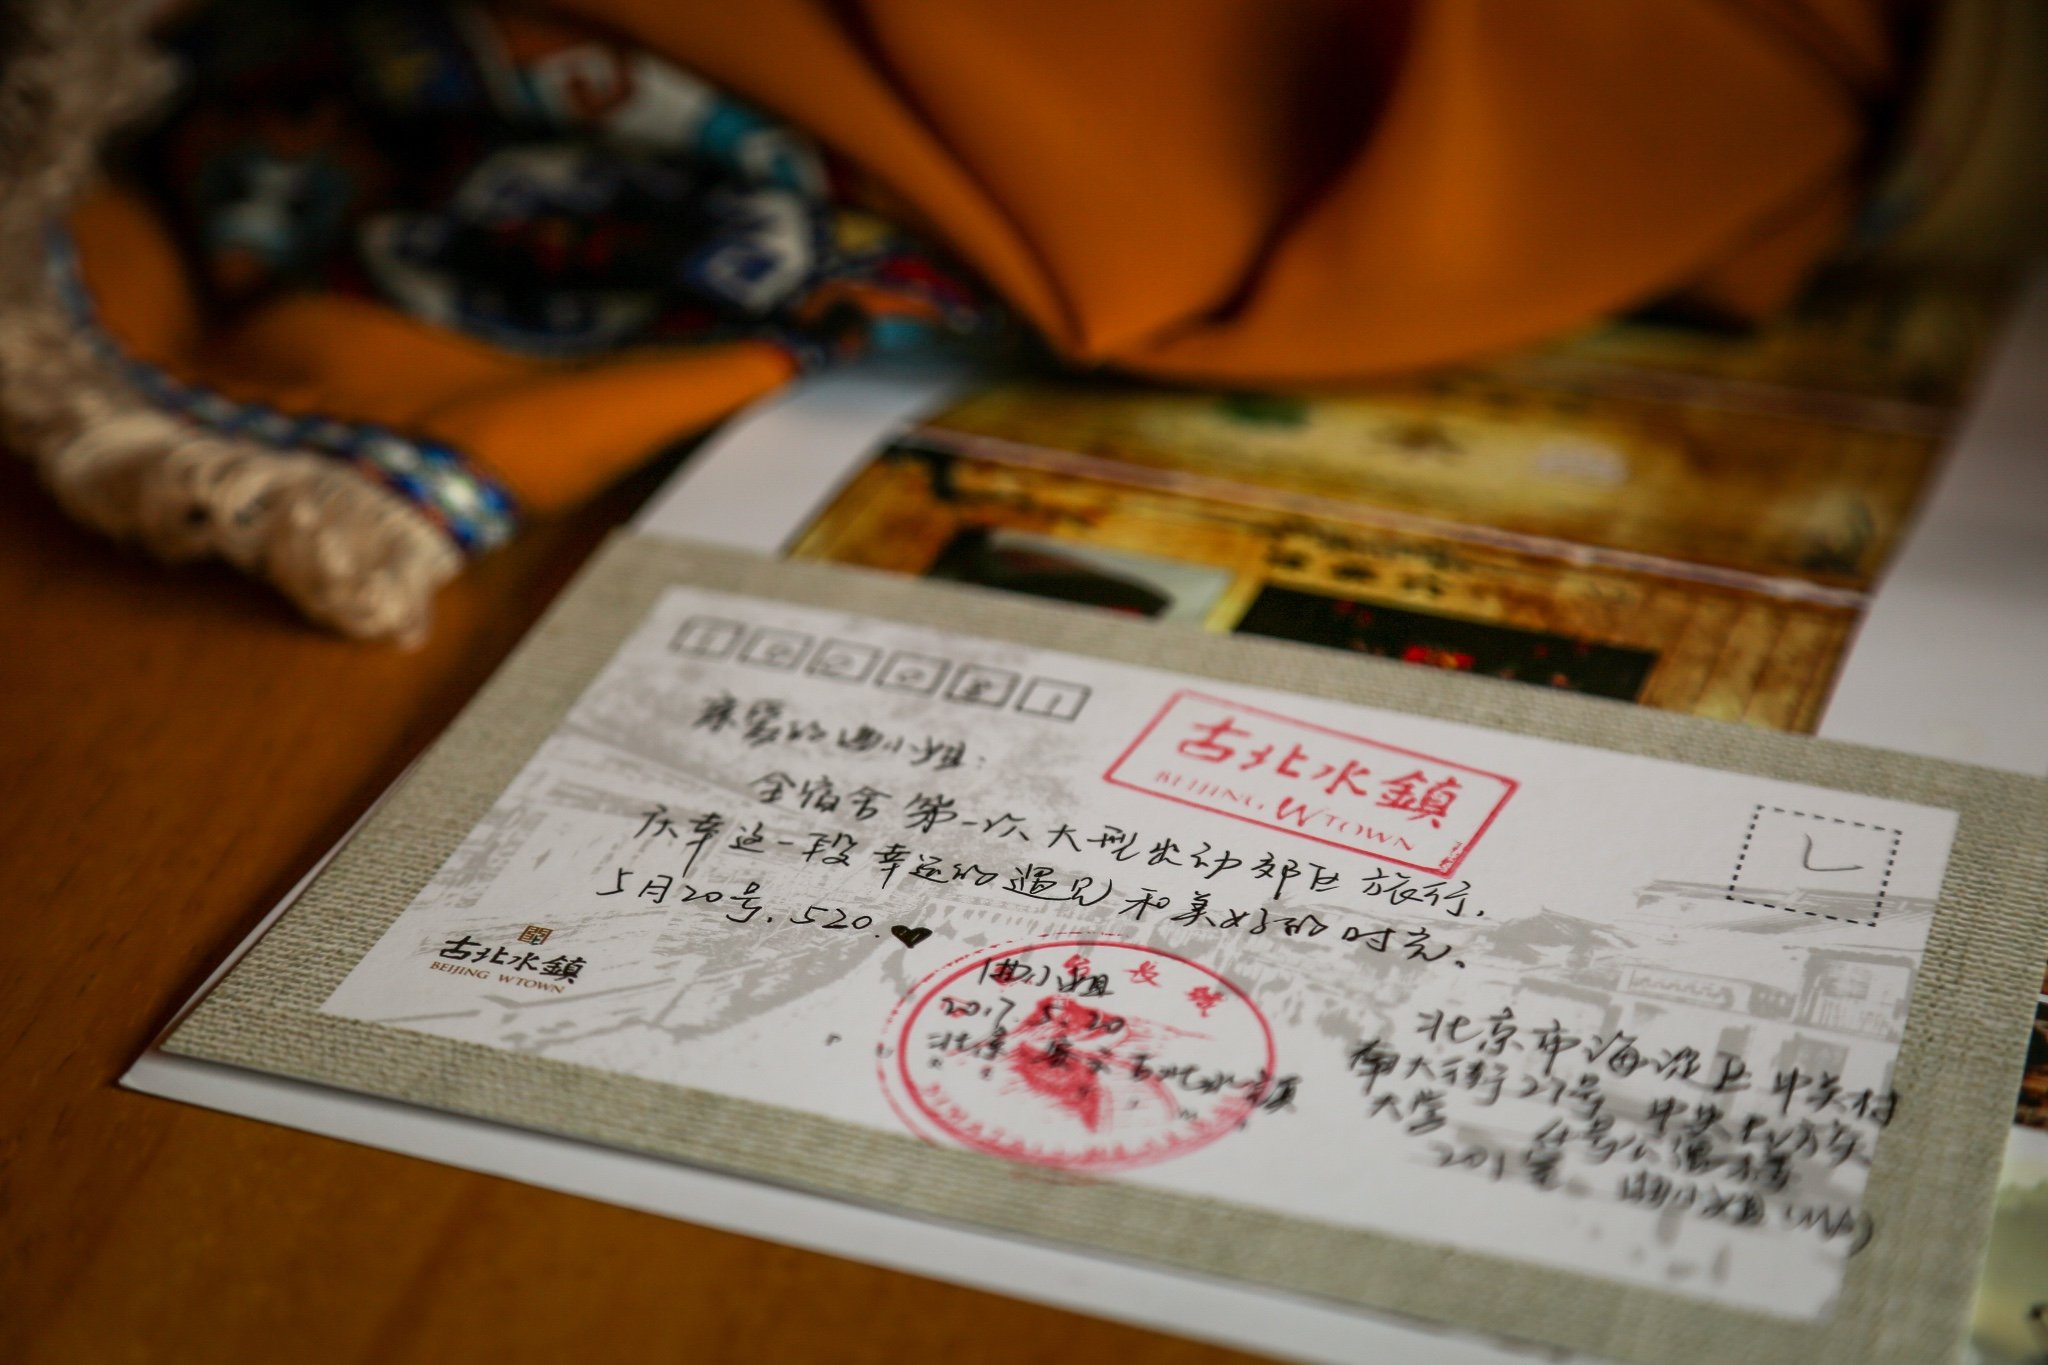 100081
亲爱的曲小姐：
古北水鎮
BEIJING WTOWN
全宿舍第一次大型出动郊区旅行.
庆幸这一段幸运的遇见和美好的时光.
5月20号. 520.
古北水鎮
BEIJING WTOWN
曲小姐
2017.5.20
北京
古北水镇
长城
北京市海淀区中关村
南大街27号 中央民族
大学
201室